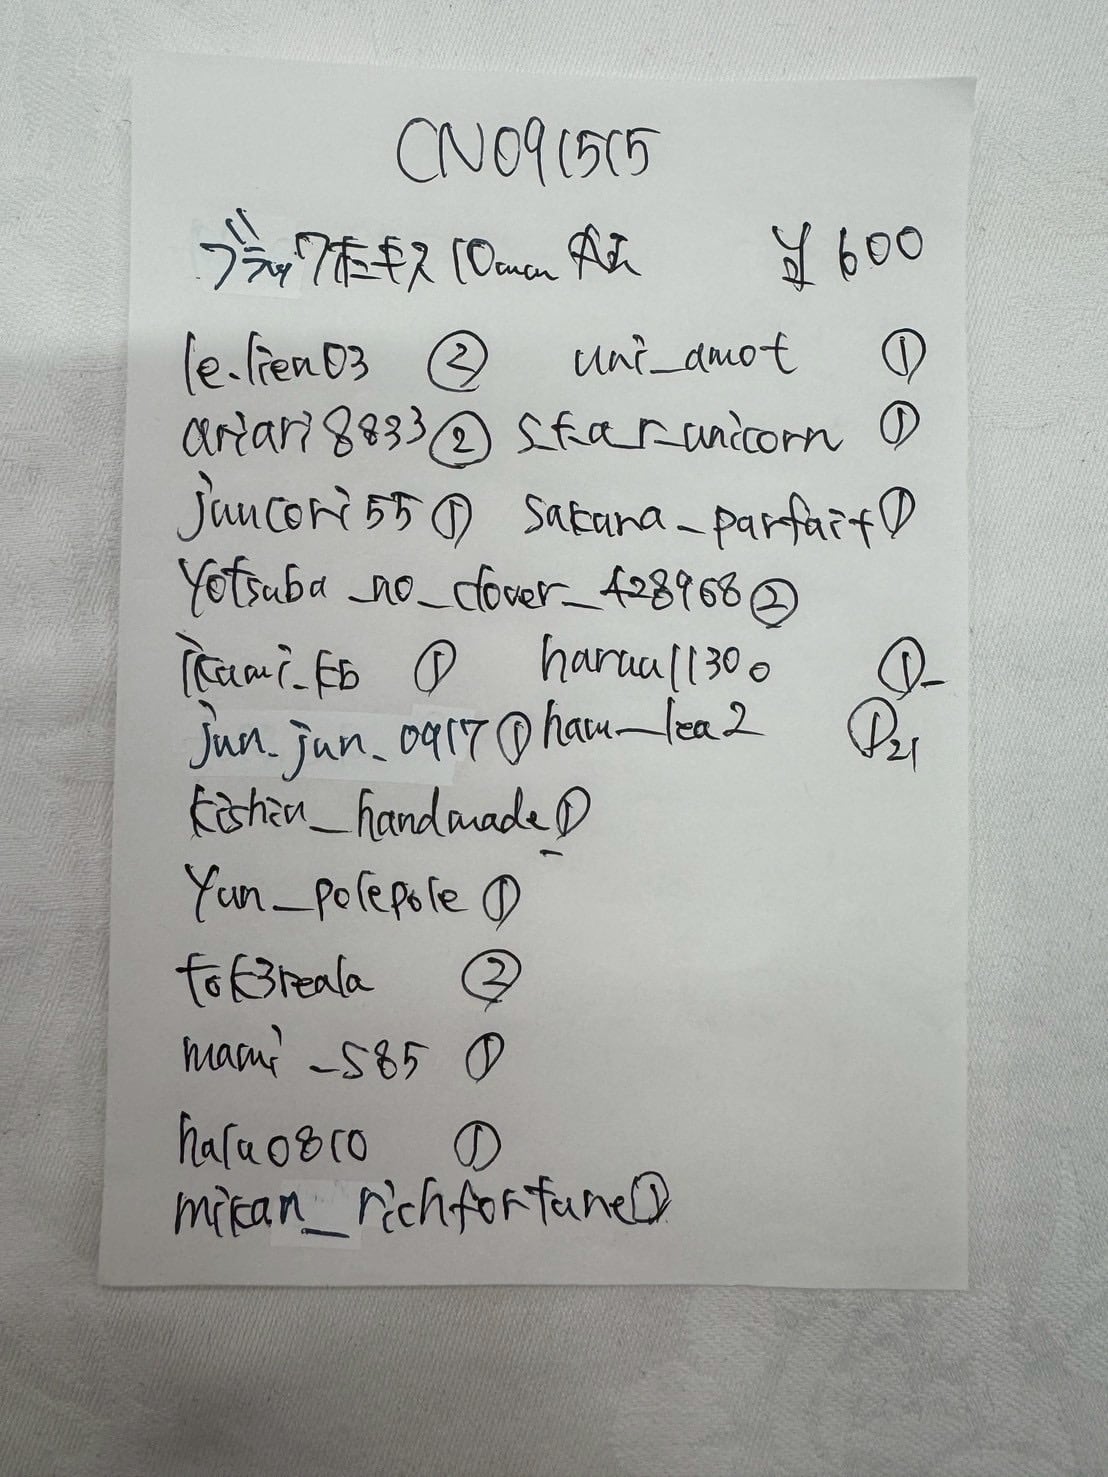 CN091515
ブラックオニキス 10mm AA ¥600
le.lien03 ② uni_amot ①
ariari8833 ② star_unicorn ①
juncori55 ① sakana_parfait ①
yotsuba_no_clover_428968 ②
ikumi_kb ① haruu1130 ①
jun_jun_0917 ① haru_lea2 ① 21
kishin_handmade ①
yun_polepole ①
tok3reala ②
mami_585 ①
halu0810 ①
mikan_richfortune ①